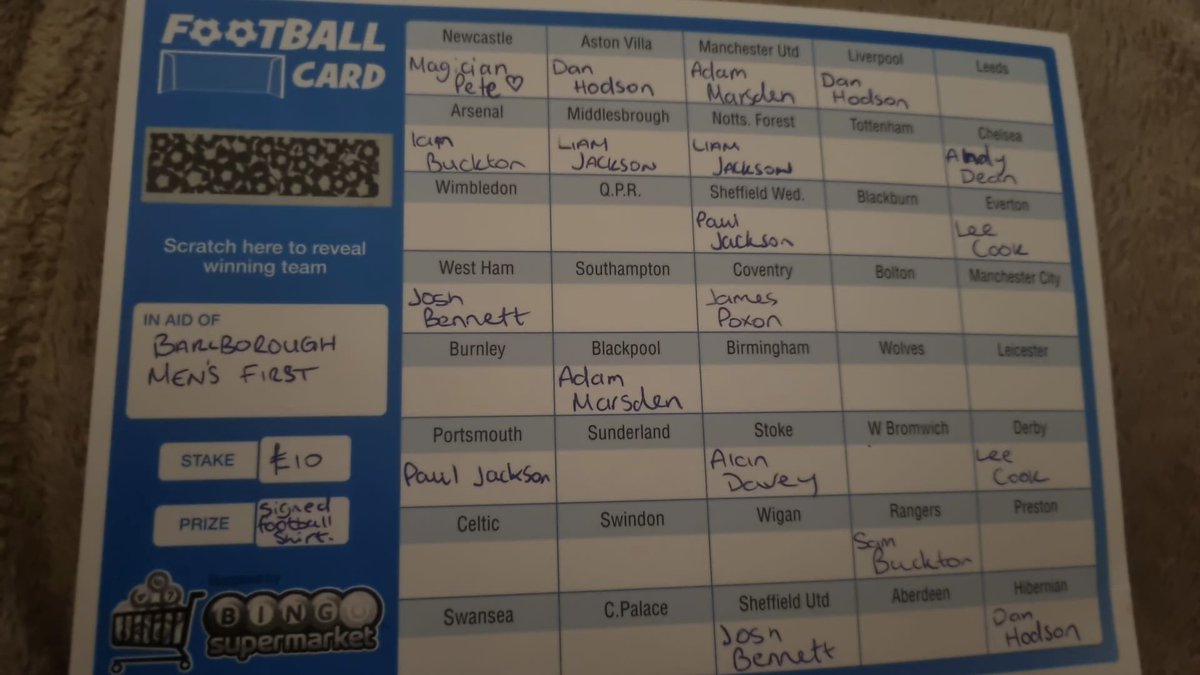 FOOTBALL
CARD
Scratch here to reveal
winning team
IN AID OF
BARLBOROUGH
MEN'S FIRST
STAKE £10
PRIZE signed
football
shirt.
BINGO
supermarket
Newcastle Aston Villa Manchester Utd Liverpool Leeds
Magician Dan Adam Dan
Pete ♡ Hodson Marsden Hodson
Arsenal Middlesbrough Notts. Forest Tottenham Chelsea
Iam LIAM LIAM Andy
Buckton JACKSON JACKSON Dean
Wimbledon Q.P.R. Sheffield Wed. Blackburn Everton
Paul Lee
Jackson Cook
West Ham Southampton Coventry Bolton Manchester City
Josh James
Bennett Poxon
Burnley Blackpool Birmingham Wolves Leicester
Adam
Marsden
Portsmouth Sunderland Stoke W Bromwich Derby
Paul Jackson Alan Lee
Davey Cook
Celtic Swindon Wigan Rangers Preston
Sam
Buckton
Swansea C.Palace Sheffield Utd Aberdeen Hibernian
Josh Dan
Bennett Hodson